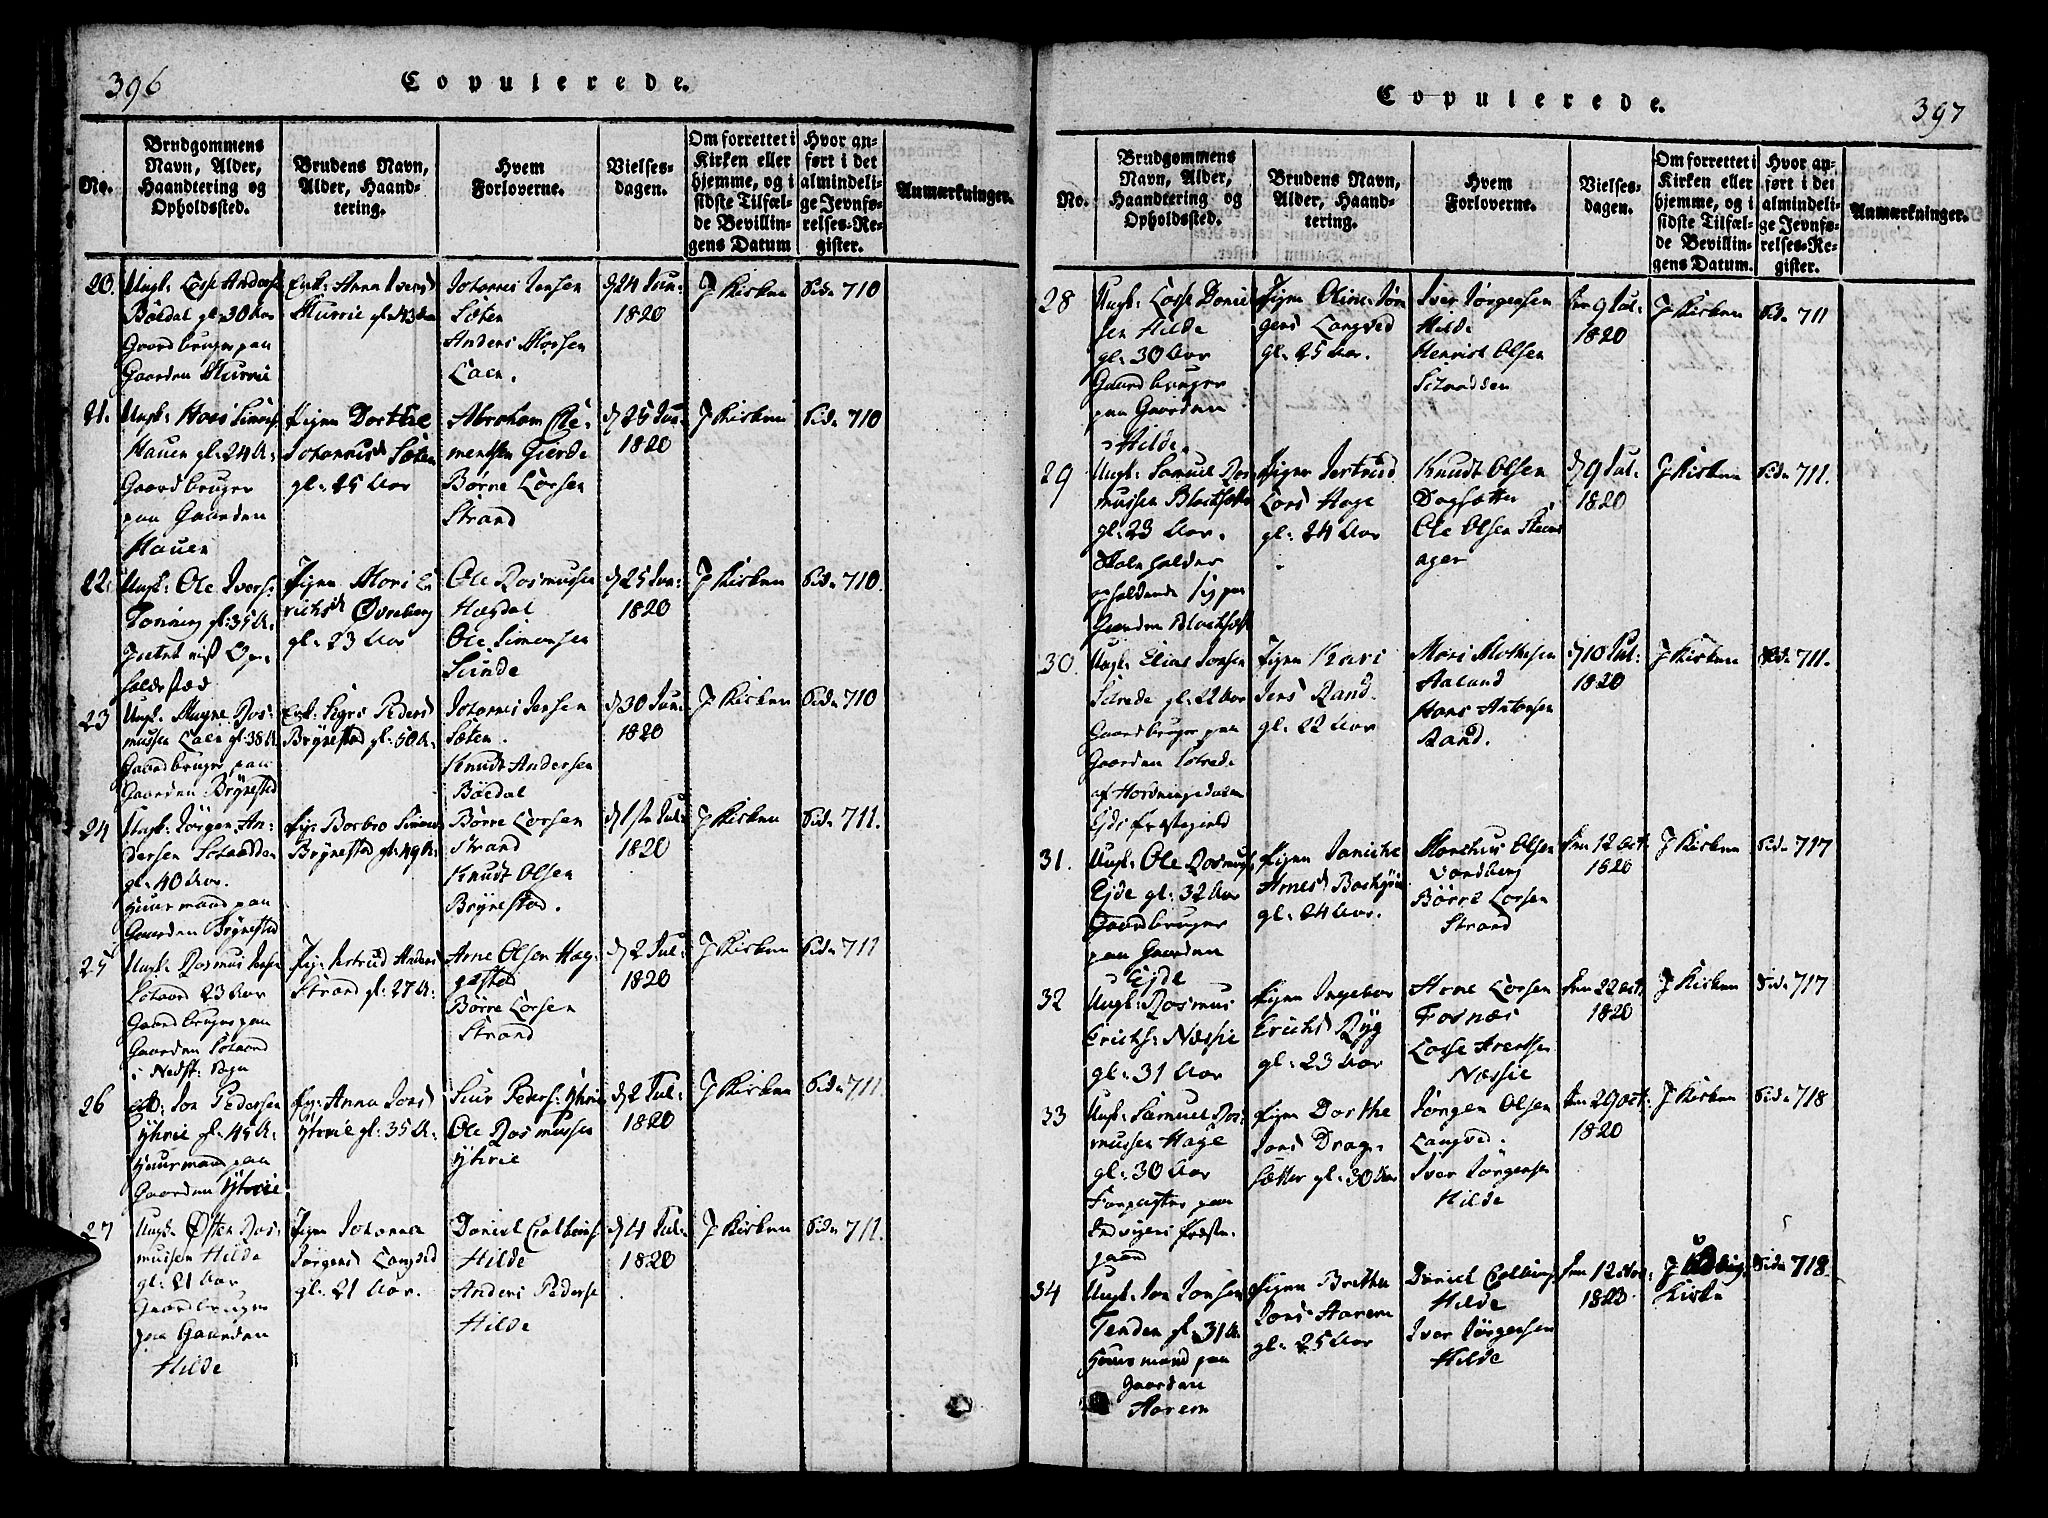 396
Copulerede.
No.
Brudgommens
Navn, Alder,
Haandtering og
Opholdssted.
Brudens Navn,
Alder, Haand-
tering.
Hvem
Forloverne.
Vielses-
dagen.
Om forrettet i
Kirken eller
hjemme, og i
sidste Tilfæl-
de Bevillin-
gens Datum
Hvor an-
ført i det
almindeli-
ge Jevnfø-
relses-Re-
gister.
Anmærkninger.
20.
Ungk: Lasse Anders
Böedal gl: 30 Aar
Gaardbruger paa
Gaarden Murrie
Enk: Anna Ivers
Murrie gl: 43 Aar
Johannes Jensen
Sæten
Anders Monsen
Loen.
d 24 Jun:
1820
J Kirken
Side 710
21.
Ungk: Simens
Hauen gl: 24 A:
Gaardbruger
paa Gaarden
Hauen
Pigen Dorthe
Johannisd Sæten
gl: 25 Aar
Abraham Cle-
mentsen Gierde
Børre Larsen
Strand
d 25 Jun:
1820
J Kirken
Side 710
22.
Ungk: Ole Ivers:
Tonning gl: 35 A:
Pigen Mari E
richsd Øvreberg
gl: 23 Aar
Ole Rasmussen
Hægdal
Ole Simensen
Sunde
d 25 Jun:
1820
J Kirken
Side 710.
23
Ungk: Magne Ras-
mussen Loen gl: 38 A
Gaardbruger paa
Gaarden Brÿnestad
Enk: Sigri Peders
Brÿnestad gl: 50 A:
Johannes Jensen
Sæten.
Knudt Andersen
Böedal
d 30 Jun:
1820
J Kirken
Side 710
24
Ungk: Jörgen An-
dersen
gl: 40 Aar.
Huusmand paa
Gaarden Brÿnestad
Pig: Barbro Simens
Brÿnestad gl: 49 A:
Børre Larsen
Strand
Knudt Olsen
Brÿnestad.
d 1ste Jul:
1820
J Kirken
Side 711.
25
Ungk: Rasmus Jensen
23 Aar
Gaardbruger paa
Gaarden
i Nedst: Sogn
Pig: Jertrud Anders
Strand gl: 27 A:
Arne Olsen Hæg-
gestad
Børre Larsen
Strand
d 2 Jul:
1820
J Kirken
Side 711
26
Enk: Jon Pedersen
Ÿtrie gl: 45 A:
Huusmand paa
Gaarden Ÿtrie
Pig: Anna Jons
Ÿtrie gl: 35 A:
Siur Peders: Ÿtrie
Ole Rasmussen
Ÿtrie
d 2 Jul:
1820
J Kirken
Side 711.
27
Ungk: Østen Ras-
mussen Hilde
gl: 21 Aar
Gaardbruger
paa Gaarden
Hilde
Pigen Johanna
Jörgens Langved
gl: 21 Aar.
Daniel Colbeins:
Hilde
Anders Peders
Hilde
d 4 Jul:
1820
J Kirken
Side 711.
397
Copulerede.
No.
Brudgommens
Navn, Alder,
Haandtering og
Opholdssted.
Brudens Navn,
Alder, Haand-
tering.
Hvem
Forloverne.
Vielses-
dagen.
Om forrettet i
Kirken eller
hjemme, og i
sidste Tilfæl-
de Bevillin-
gens Datum.
Hvor an-
ført i det
almindeli-
ge Jevnfø-
relses-Re-
gister.
Anmærkninger.
28
Ungk: Lasse Daniel
sen Hilde
gl: 30 Aar
Gaardbruger
paa Gaarden
Hilde.
Pigen Oline Jörn
gens Langved
gl: 25 Aar.
Iver Jörgensen
Hilde
Henrich Olsen
den 9 Jul:
1820
J Kirken
Side 711
29
Ungk: Samuel Ras
mussen
gl: 23 Aar.
Skoleholder
opholdende sig paa
Gaarden
Pigen Jertrud
Lars Hage
gl: 24 Aar
Knudt Olsen
Dragsætter
Ole Olsen
ager
d 9 Jul:
1820
J Kirken
Side 711.
30.
Ungk: Elias Jonsen
gl: 22 Aar
Gaardbruger paa
Gaarden
Pigen Kari
Jens Rand
gl: 22 Aar
Aaland
Hans Antonsen
Rand.
d 10 Jul:
1820
J Kirken
Side 711.
31.
Ungk: Ole Rasmus
Ejde gl: 32 Aar
Gaardbruger
paa Gaarden
Ejde
Pigen Janiche
Arnesd
gl: 24 Aar.
Olsen
Børre Larsen
Strand
den 12 Oct:
1820
J Kirken
Side 717
32
Ungk: Rasmus
Erichs: Næssie
gl: 31 Aar
Pigen Ingebor
Erichs Rÿg
gl: 23 Aar
Arne Larsen
Fosnæs
Lasse Arentsen
Næssie
den 22 Oct:
1820
J Kirken
Side 717
33
Ungk: Samuel Ras-
mussen Hage
gl: 30 Aar
Pigen Dorthe
Jons Drag-
sætter gl: 30 Aar
Jörgen Olsen
Langved.
Iver Jörgensen
Hilde
den 29 Oct:
1820
J Kirken
Side 718
34
Ungk: Jon Jonsen
Tenden gl: 31 A:
Huusmand paa
Gaarden
Aarem
Pigen Brithe
Jons Aarem
gl: 25 Aar
Daniel Colbeins
Hilde
Iver Jörgensen
Hilde
den 12 Nov:
1820
J
Kirke
Side 718.